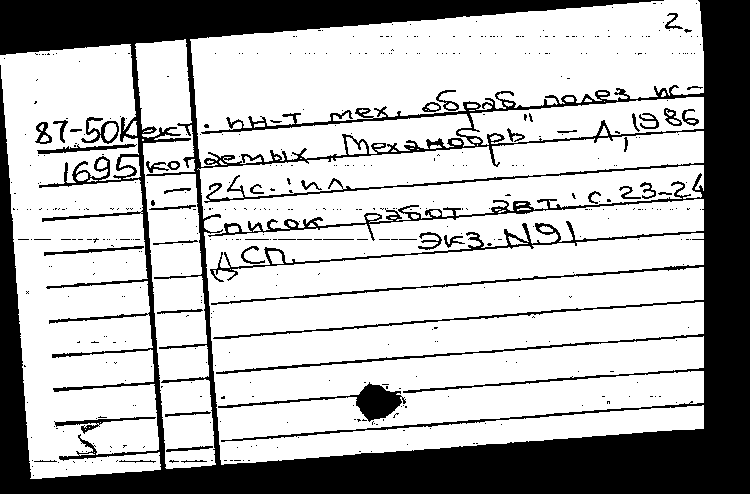 2.
87-50К ект. ин-т мех. обраб. полез. ис-
1695 копаемых „Механобрь". - Л., 1986
. - 24с. : ил.
Список работ авт.: с. 23-24
ДСП. Экз. N91
5